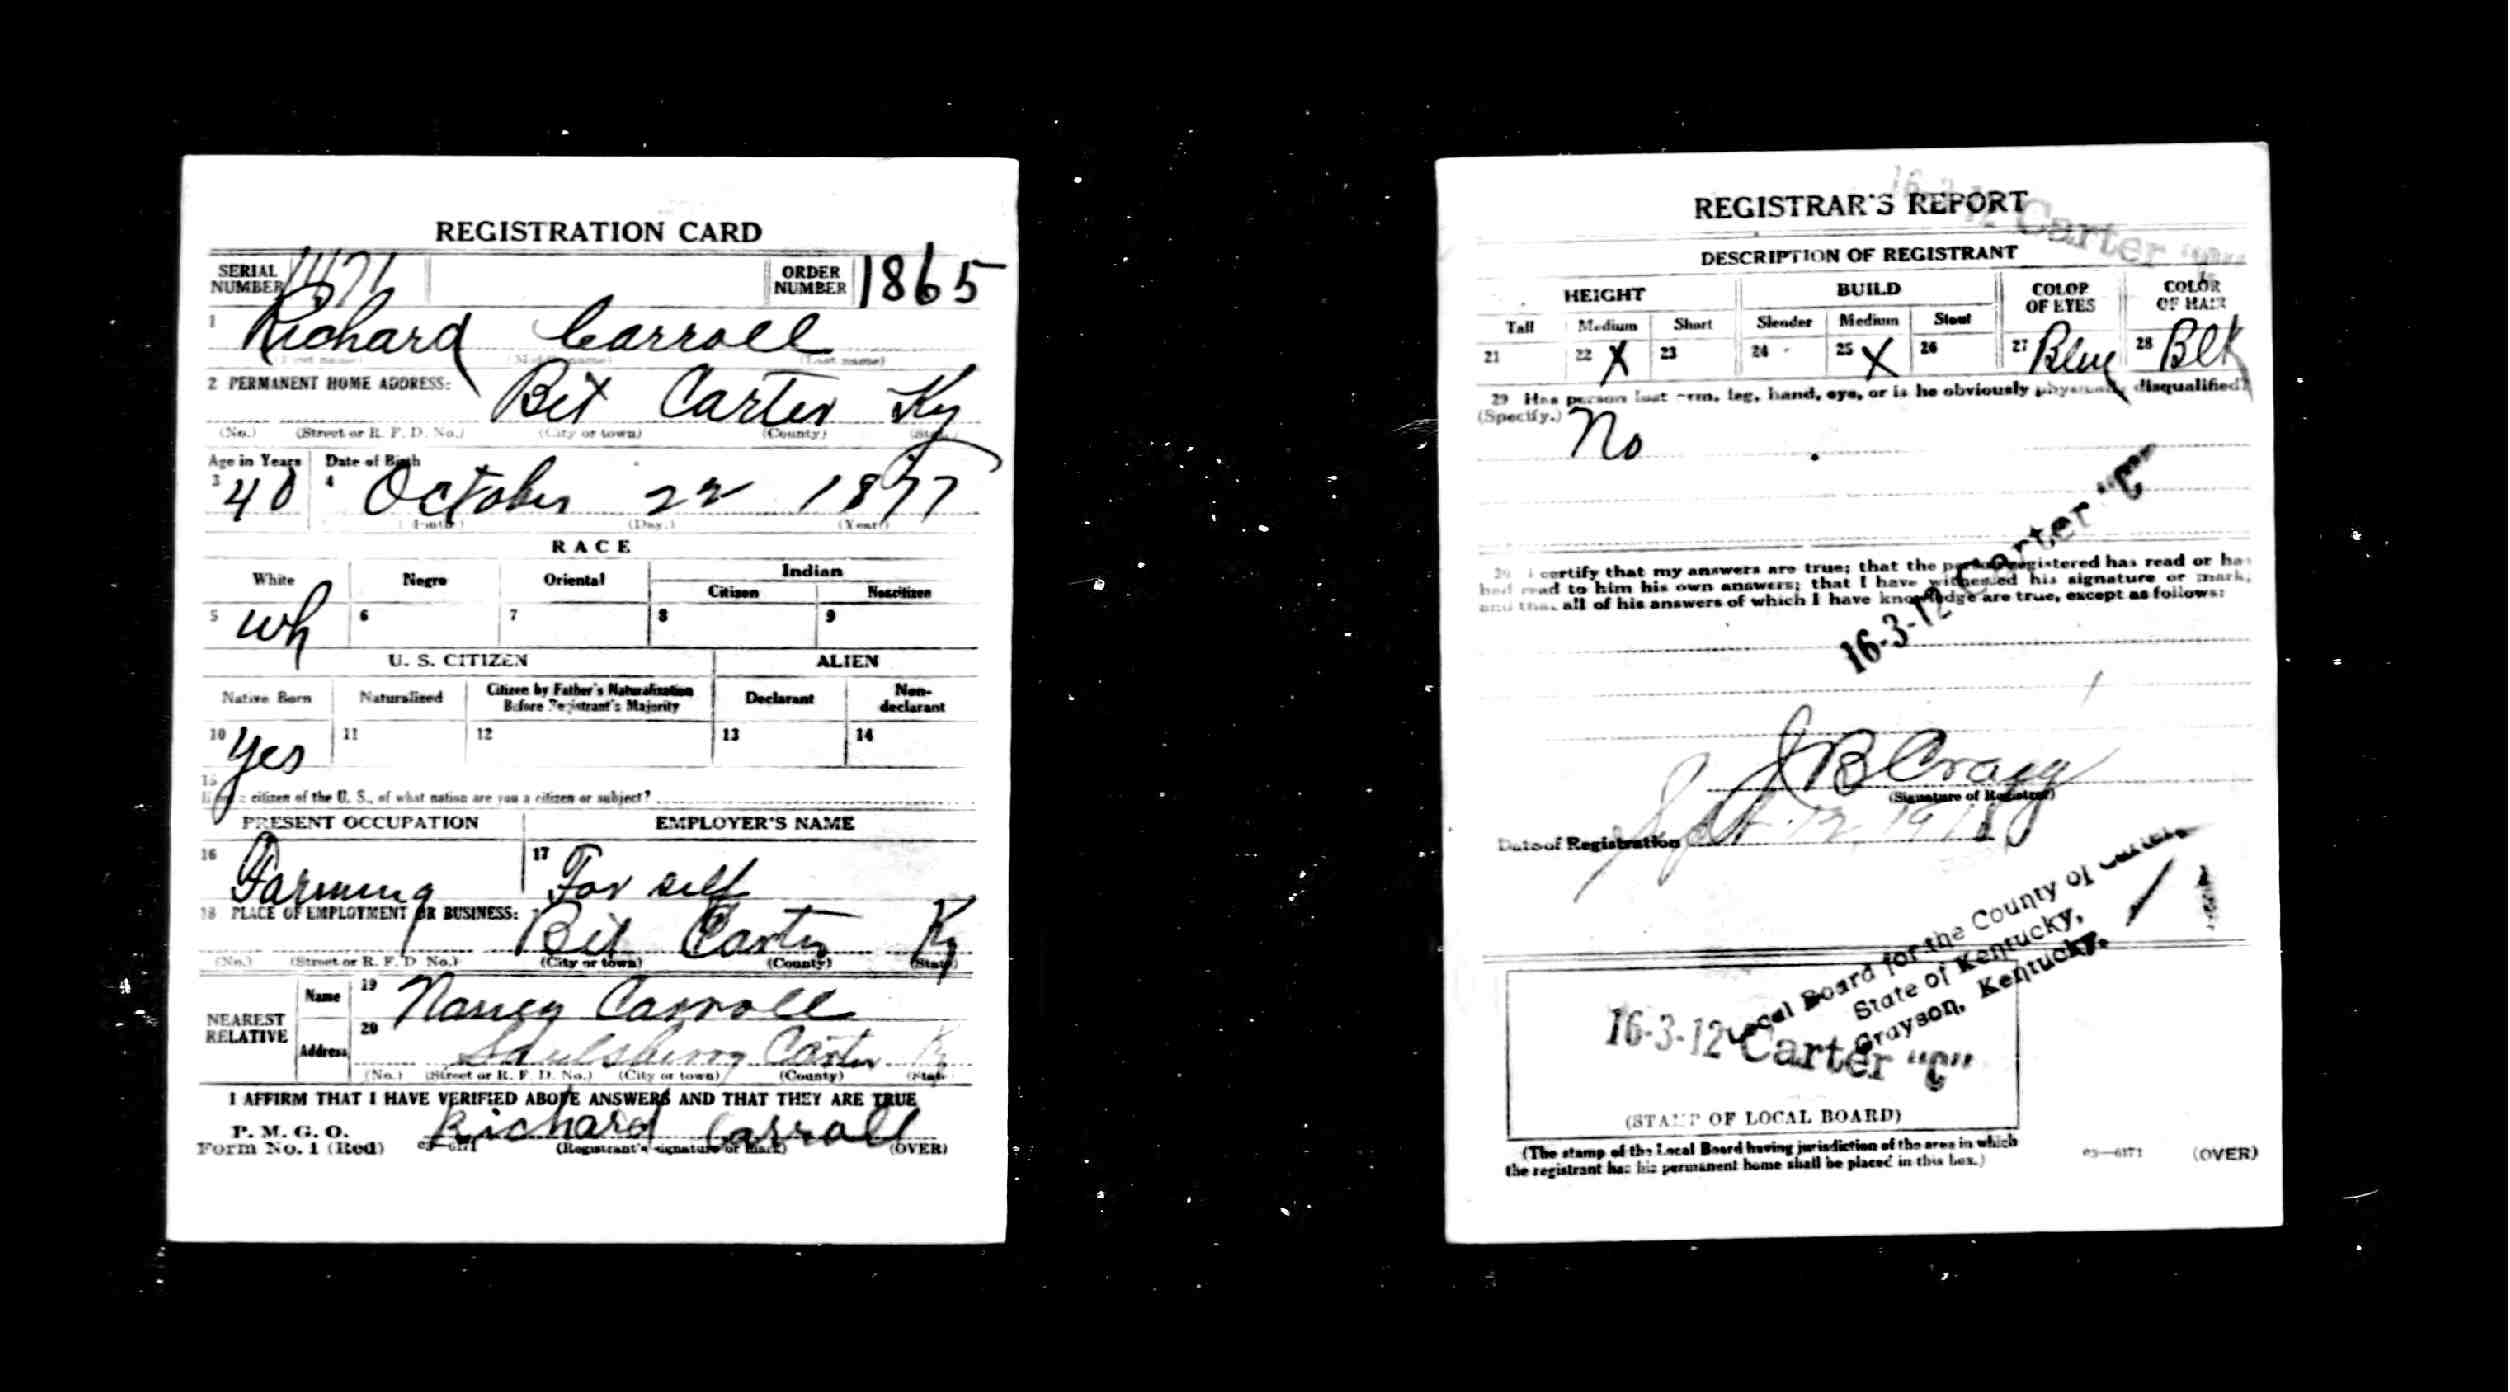 REGISTRATION CARD
SERIAL NUMBER 1471 ORDER NUMBER 1865
1 Richard Carroll
(First name) (Middle name) (Last name)
2 PERMANENT HOME ADDRESS: Bet Carter Ky
(No.) (Street or R. F. D. No.) (City or town) (County) (State)
Age in Years Date of Birth
3 40 4 October 22 1877
(Month) (Day.) (Year)
RACE
White Negro Oriental Indian
Citizen Noncitizen
5 Wh 6 7 8 9
U. S. CITIZEN ALIEN
Native Born Naturalized Citizen by Father's Naturalization Before Registrant's Majority Declarant Non-declarant
10 Yes 11 12 13 14
15
citizen of the U. S., of what nation are you a citizen or subject?
PRESENT OCCUPATION EMPLOYER'S NAME
16 Farming 17 For self
18 PLACE OF EMPLOYMENT OR BUSINESS: Bet Carter Ky
(No.) (Street or R. F. D. No.) (City or town) (County) (State)
NEAREST RELATIVE
Name 19 Nancy Carroll
Address 20 Saulsberry Carter Ky
(No.) (Street or R. F. D. No.) (City or town) (County) (State)
I AFFIRM THAT I HAVE VERIFIED ABOVE ANSWERS AND THAT THEY ARE TRUE
P. M. G. O.
Form No. 1 (Red) Richard Carroll
(Registrant's signature or mark) (OVER)
REGISTRAR'S REPORT
16-3-12 Carter "C"
DESCRIPTION OF REGISTRANT
HEIGHT BUILD COLOR OF EYES COLOR OF HAIR
Tall Medium Short Slender Medium Stout
21 22 X 23 24 25 X 26 27 Blue 28 Blk
29 Has person lost arm, leg, hand, eye, or is he obviously physically disqualified?
(Specify.) No
16-3-12 Carter "C"
30 I certify that my answers are true; that the person registered has read or has
had read to him his own answers; that I have witnessed his signature or mark,
and that all of his answers of which I have knowledge are true, except as follows:
J B Cragg
(Signature of Registrar)
Date of Registration Sept. 12, 1918
Local Board for the County of Carter,
State of Kentucky,
Grayson, Kentucky.
16-3-12 Carter "C"
(STAMP OF LOCAL BOARD)
(The stamp of the Local Board having jurisdiction of the area in which
the registrant has his permanent home shall be placed in this box.)
03—6171 (OVER)